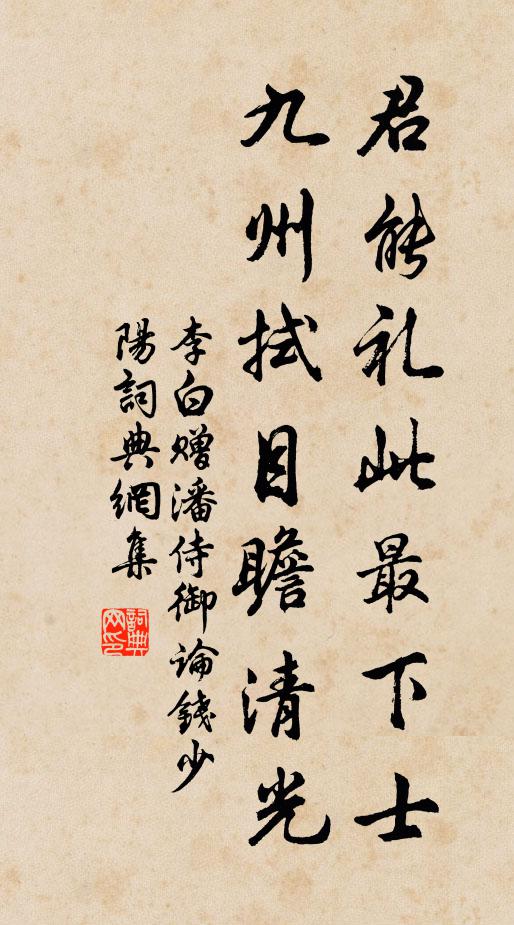 君能礼此最下士
九州拭目瞻清光
李白赠潘侍御論錢少
陽詞典網集
詞典
网印